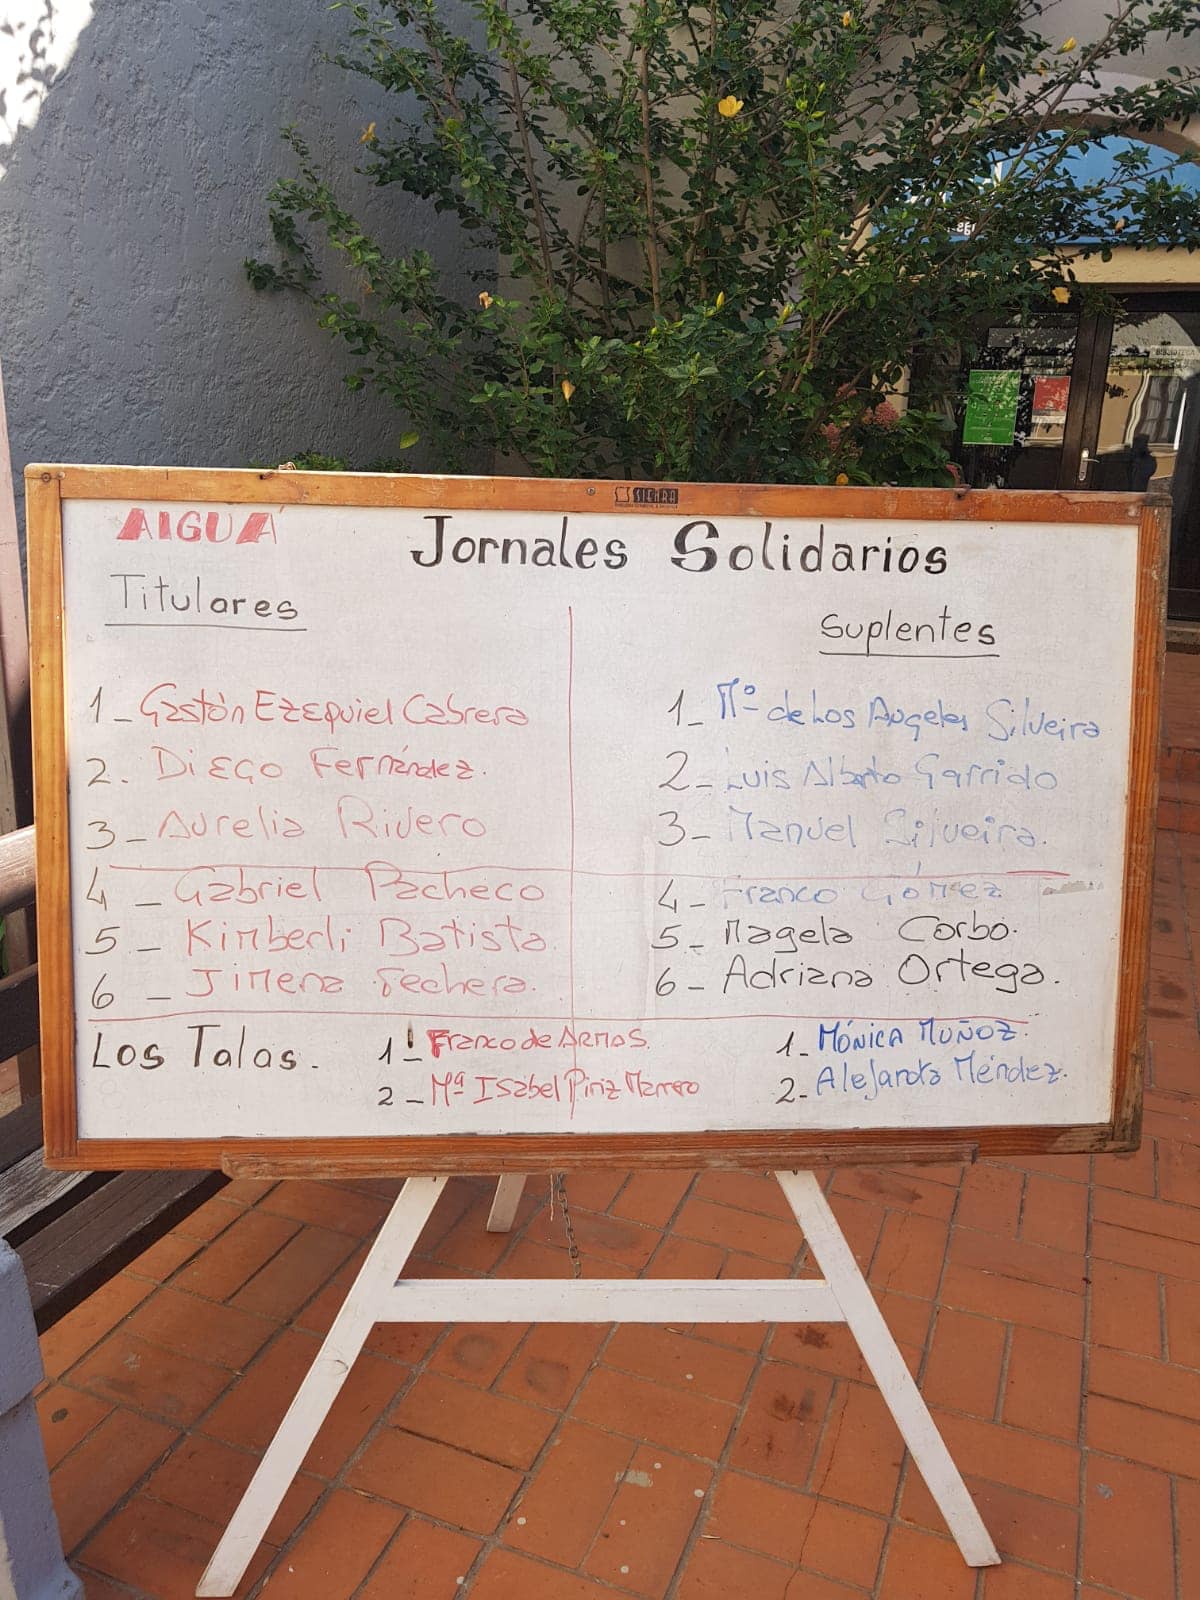 SIERRA
AIGUÁ
Jornales Solidarios
Titulares
Suplentes
1_ Gastón Ezequiel Cabrera
2. Diego Fernández.
3_ Aurelia Rivero
4_ Gabriel Pacheco
5_ Kimberli Batista.
6_ Jimena Techera.
1_ Mª de Los Angeles Silveira
2_ Luis Alberto Garrido
3_ Manuel Silveira.
4_ Franco Gómez
5_ Magela Corbo.
6_ Adriana Ortega.
Los Talas.
1_ Franco de Armas.
2_ Mª Isabel Piriz Marrero
1_ Mónica Muñoz.
2_ Alejandra Méndez.
BIBLIOTECA